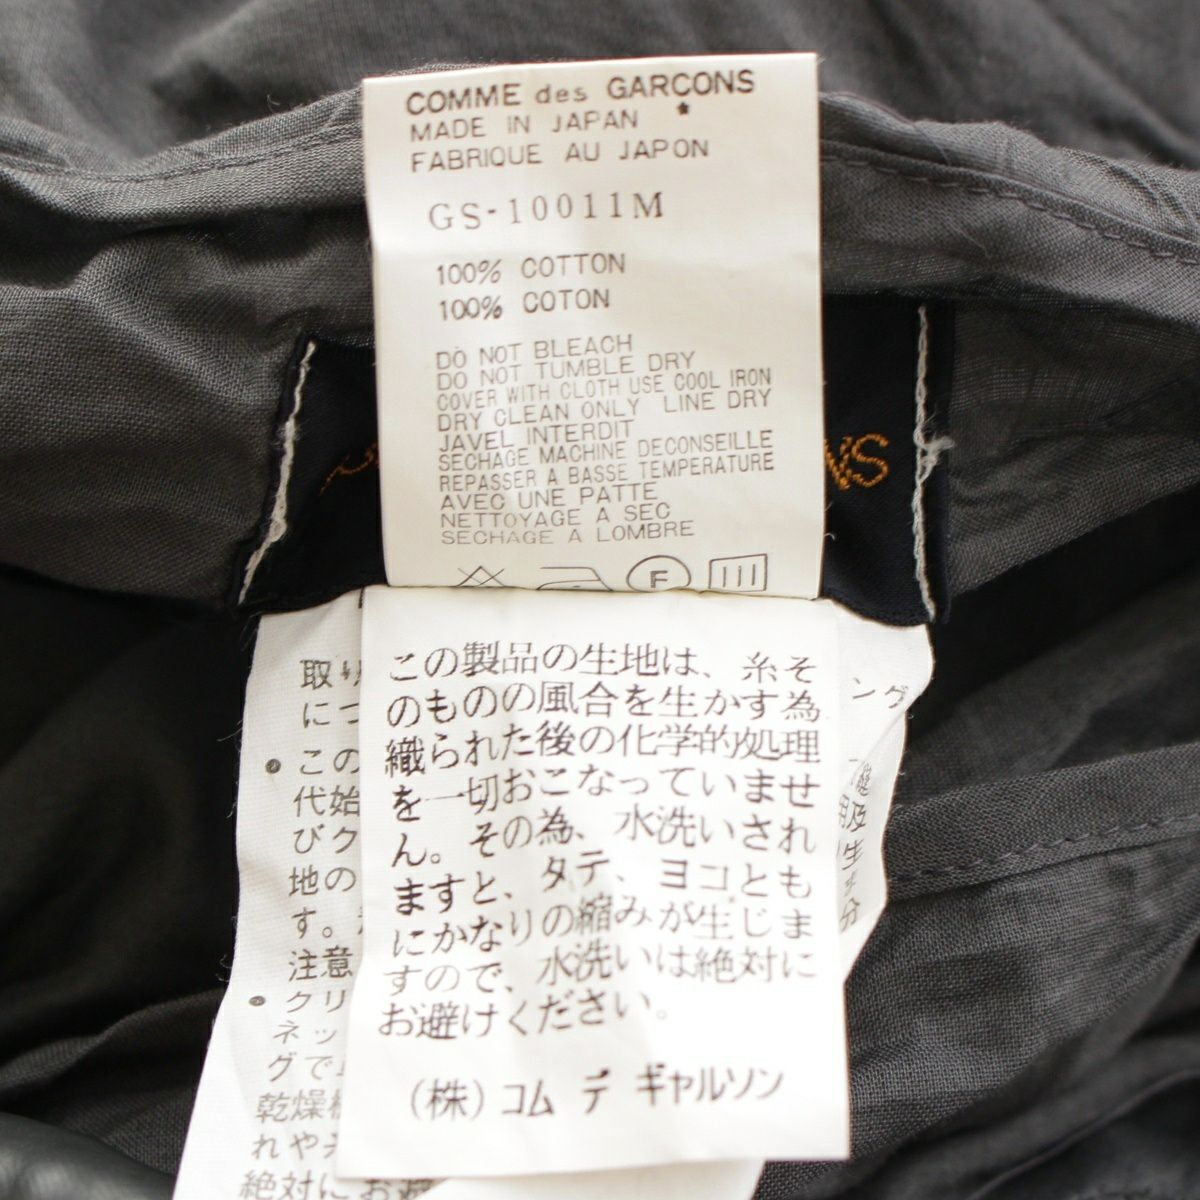 COMME des GARCONS
MADE IN JAPAN *
FABRIQUE AU JAPON
GS-10011M
100% COTTON
100% COTON
DO NOT BLEACH
DO NOT TUMBLE DRY
COVER WITH CLOTH USE COOL IRON
DRY CLEAN ONLY LINE DRY
JAVEL INTERDIT
SECHAGE MACHINE DECONSEILLE
REPASSER A BASSE TEMPERATURE
AVEC UNE PATTE
NETTOYAGE A SEC
SECHAGE A LOMBRE
F
NS
この製品の生地は、糸そ
のものの風合を生かす為
織られた後の化学的処理
を一切おこなっていませ
ん。その為、水洗いされ
ますと、タテ、ヨコとも
にかなりの縮みが生じま
すので、水洗いは絶対に
お避けください。
(株)コム デ ギャルソン
取り
につ
ング
・この
代始
びク
地の
す。
注意
・クリ
ネッ
グで
乾燥
れや
絶対にお避
及
生
分